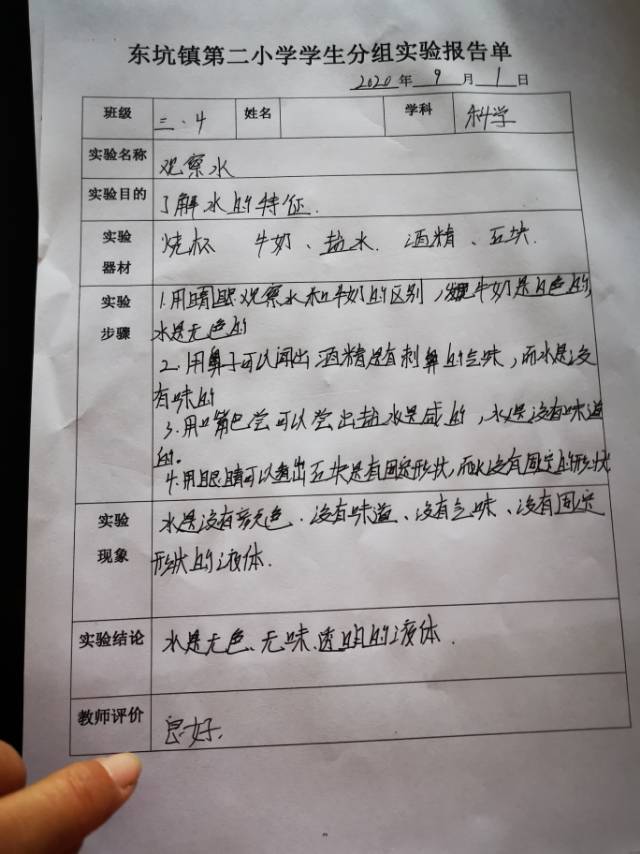 东坑镇第二小学学生分组实验报告单
2020年 9 月 1 日
班级 三.4 姓名 学科 科学
实验名称 观察水
实验目的 了解水的特征.
实验器材 烧杯 牛奶、盐水. 酒精、石块.
实验步骤 1.用睛眼观察水和牛奶的区别,发现牛奶是白色的,
水是无色的
2.用鼻子可以闻出酒精是有刺鼻的气味,而水是没
有味的
3.用嘴巴尝可以尝出盐水是咸的,水是没有味道
的.
4.用眼睛可以看出石块是有固定形状,而水没有固定的形状
实验现象 水是没有颜色.没有味道、没有气味、没有固定
形状的液体.
实验结论 水是无色、无味、透明的液体.
教师评价 良好.